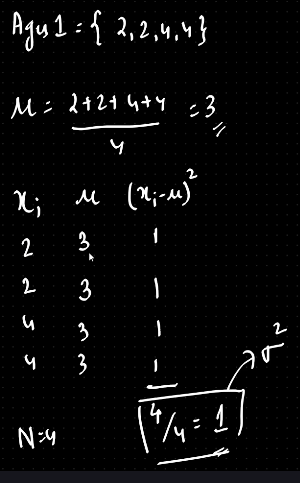 Ages 1 = { 2, 2, 4, 4 }
μ = 2+2+4+4 / 4 = 3
xᵢ μ (xᵢ-μ)²
2 3 1
2 3 1
4 3 1
4 3 1
σ²
4/4 = 1
N=4